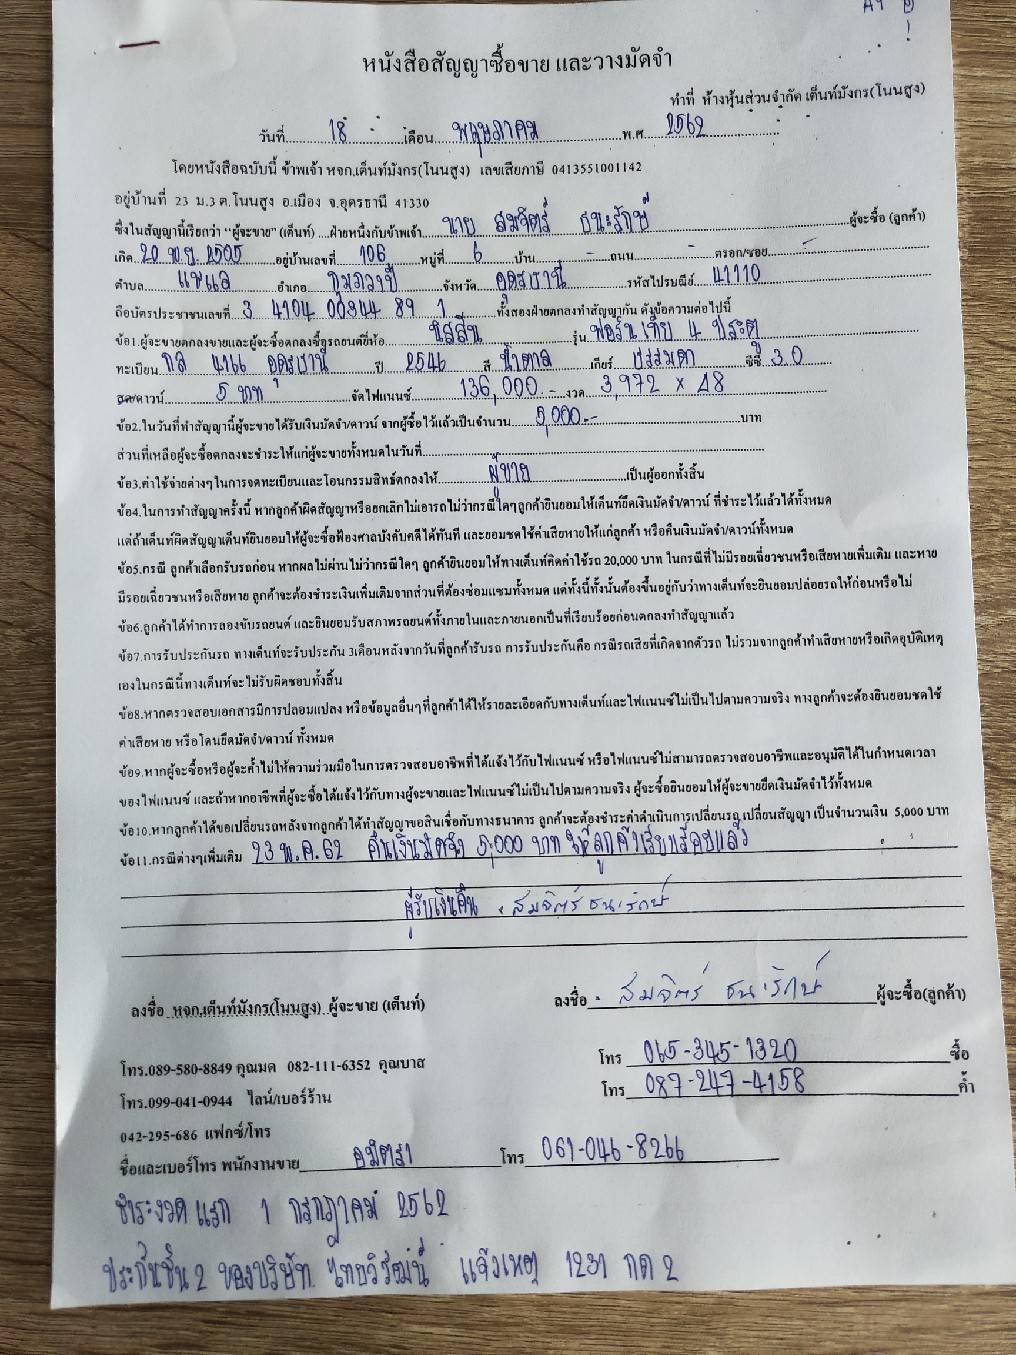 หนังสือสัญญาซื้อขาย และวางมัดจำ
ทำที่ ห้างหุ้นส่วนจำกัด เต็นท์มังกร(โนนสูง)
วันที่ 18 เดือน พฤษภาคม พ.ศ 2562
โดยหนังสือฉบับนี้ ข้าพเจ้า หจก.เต็นท์มังกร(โนนสูง) เลขเสียภาษี 0413551001142
อยู่บ้านที่ 23 ม.3 ต.โนนสูง อ.เมือง จ.อุดรธานี 41330
ซึ่งในสัญญานี้เรียกว่า "ผู้จะขาย" (เต็นท์) ...ฝ่ายหนึ่งกับข้าพเจ้า นาย สมจิตร์ ธนะรักษ์ ผู้จะซื้อ (ลูกค้า)
เกิด 20 พ.ย. 2505 อยู่บ้านเลขที่ 106 หมู่ที่ 6 บ้าน - ถนน - ตรอก/ซอย -
ตำบล แชแล อำเภอ กุมภวาปี จังหวัด อุดรธานี รหัสไปรษณีย์ 41110
ถือบัตรประชาชนเลขที่ 3 4104 00344 89 1 ทั้งสองฝ่ายตกลงทำสัญญากัน ดังข้อความต่อไปนี้
ข้อ1.ผู้จะขายตกลงขายและผู้จะซื้อตกลงซื้อรถยนต์ยี่ห้อ นิสสัน รุ่น ฟอร์นเทีย 4 ประตู
ทะเบียน กล 4166 อุดรธานี ปี 2546 สี น้ำตาล เกียร์ ธรรมดา ซีซี 3.0
สด/ดาวน์ 5 บาท จัดไฟแนนซ์ 136,000.- งวด 3,972 x 48
ข้อ2.ในวันที่ทำสัญญานี้ผู้จะขายได้รับเงินมัดจำ/ดาวน์ จากผู้ซื้อไว้แล้วเป็นจำนวน 5,000.- บาท
ส่วนที่เหลือผู้จะซื้อตกลงจะชำระให้แก่ผู้จะขายทั้งหมดในวันที่
ข้อ3.ค่าใช้จ่ายต่างๆในการจดทะเบียนและโอนกรรมสิทธ์ตกลงให้ ผู้ขาย เป็นผู้ออกทั้งสิ้น
ข้อ4.ในการทำสัญญาครั้งนี้ หากลูกค้าผิดสัญญาหรือยกเลิกไม่เอารถไม่ว่ากรณีใดๆลูกค้ายินยอมให้เต็นท์ยึดเงินมัดจำ/ดาวน์ ที่ชำระไว้แล้วได้ทั้งหมด
แต่ถ้าเต็นท์ผิดสัญญาเต็นท์ยินยอมให้ผู้จะซื้อฟ้องศาลบังคับคดีได้ทันที และยอมชดใช้ค่าเสียหายให้แก่ลูกค้า หรือคืนเงินมัดจำ/ดาวน์ทั้งหมด
ข้อ5.กรณี ลูกค้าเลือกรับรถก่อน หากผลไม่ผ่านไม่ว่ากรณีใดๆ ลูกค้ายินยอมให้ทางเต็นท์คิดค่าใช้รถ 20,000 บาท ในกรณีที่ไม่มีรอยเฉี่ยวชนหรือเสียหายเพิ่มเติม และหาย
มีรอยเฉี่ยวชนหรือเสียหาย ลูกค้าจะต้องชำระเงินเพิ่มเติมจากส่วนที่ต้องซ่อมแซมทั้งหมด แต่ทั้งนี้ทั้งนั้นต้องขึ้นอยู่กับว่าทางเต็นท์จะยินยอมปล่อยรถให้ก่อนหรือไม่
ข้อ6.ลูกค้าได้ทำการลองขับรถยนต์ และยินยอมรับสภาพรถยนต์ทั้งภายในและภายนอกเป็นที่เรียบร้อยก่อนตกลงทำสัญญาแล้ว
ข้อ7.การรับประกันรถ ทางเต็นท์จะรับประกัน 3เดือนหลังจากวันที่ลูกค้ารับรถ การรับประกันคือ กรณีรถเสียที่เกิดจากตัวรถ ไม่รวมจากลูกค้าทำเสียหายหรือเกิดอุบัติเหตุ
เองในกรณีนี้ทางเต็นท์จะไม่รับผิดชอบทั้งสิ้น
ข้อ8.หากตรวจสอบเอกสารมีการปลอมแปลง หรือข้อมูลอื่นๆที่ลูกค้าได้ให้รายละเอียดกับทางเต็นท์และไฟแนนซ์ไม่เป็นไปตามความจริง ทางลูกค้าจะต้องยินยอมชดใช้
ค่าเสียหาย หรือโดนยึดมัดจำ/ดาวน์ ทั้งหมด
ข้อ9.หากผู้จะซื้อหรือผู้จะค้ำไม่ให้ความร่วมมือในการตรวจสอบอาชีพที่ได้แจ้งไว้กับไฟแนนซ์ หรือไฟแนนซ์ไม่สามารถตรวจสอบอาชีพและอนุมัติได้ในกำหนดเวลา
ของไฟแนนซ์ และถ้าหากอาชีพที่ผู้จะซื้อได้แจ้งไว้กับทางผู้จะขายและไฟแนนซ์ไม่เป็นไปตามความจริง ผู้จะซื้อยินยอมให้ผู้จะขายยึดเงินมัดจำไว้ทั้งหมด
ข้อ10.หากลูกค้าได้ขอเปลี่ยนรถหลังจากลูกค้าได้ทำสัญญาขอสินเชื่อกับทางธนาคาร ลูกค้าจะต้องชำระค่าดำเนินการเปลี่ยนรถ เปลี่ยนสัญญา เป็นจำนวนเงิน 5,000 บาท
ข้อ11.กรณีต่างๆเพิ่มเติม 23 พ.ค. 62 คืนเงินมัดจำ 5,000 บาท ให้ลูกค้าเรียบร้อยแล้ว
ผู้รับเงินคืน สมจิตร์ ธนะรักษ์
ลงชื่อ หจก.เต็นท์มังกร(โนนสูง) ผู้จะขาย (เต็นท์) ลงชื่อ สมจิตร์ ธนะรักษ์ ผู้จะซื้อ(ลูกค้า)
โทร 065-345-1320 ซื้อ
โทร.089-580-8849 คุณมด 082-111-6352 คุณบาส
โทร 087-247-4158 ค้ำ
โทร.099-041-0944 ไลน์/เบอร์ร้าน
042-295-686 แฟกซ์/โทร
ชื่อและเบอร์โทร พนักงานขาย อมิตรา โทร 061-046-8266
ชำระงวดแรก 1 กรกฎาคม 2562
ประกันชั้น 2 ของบริษัท ไทยวิวัฒน์ แจ้งเหตุ 1231 กด 2